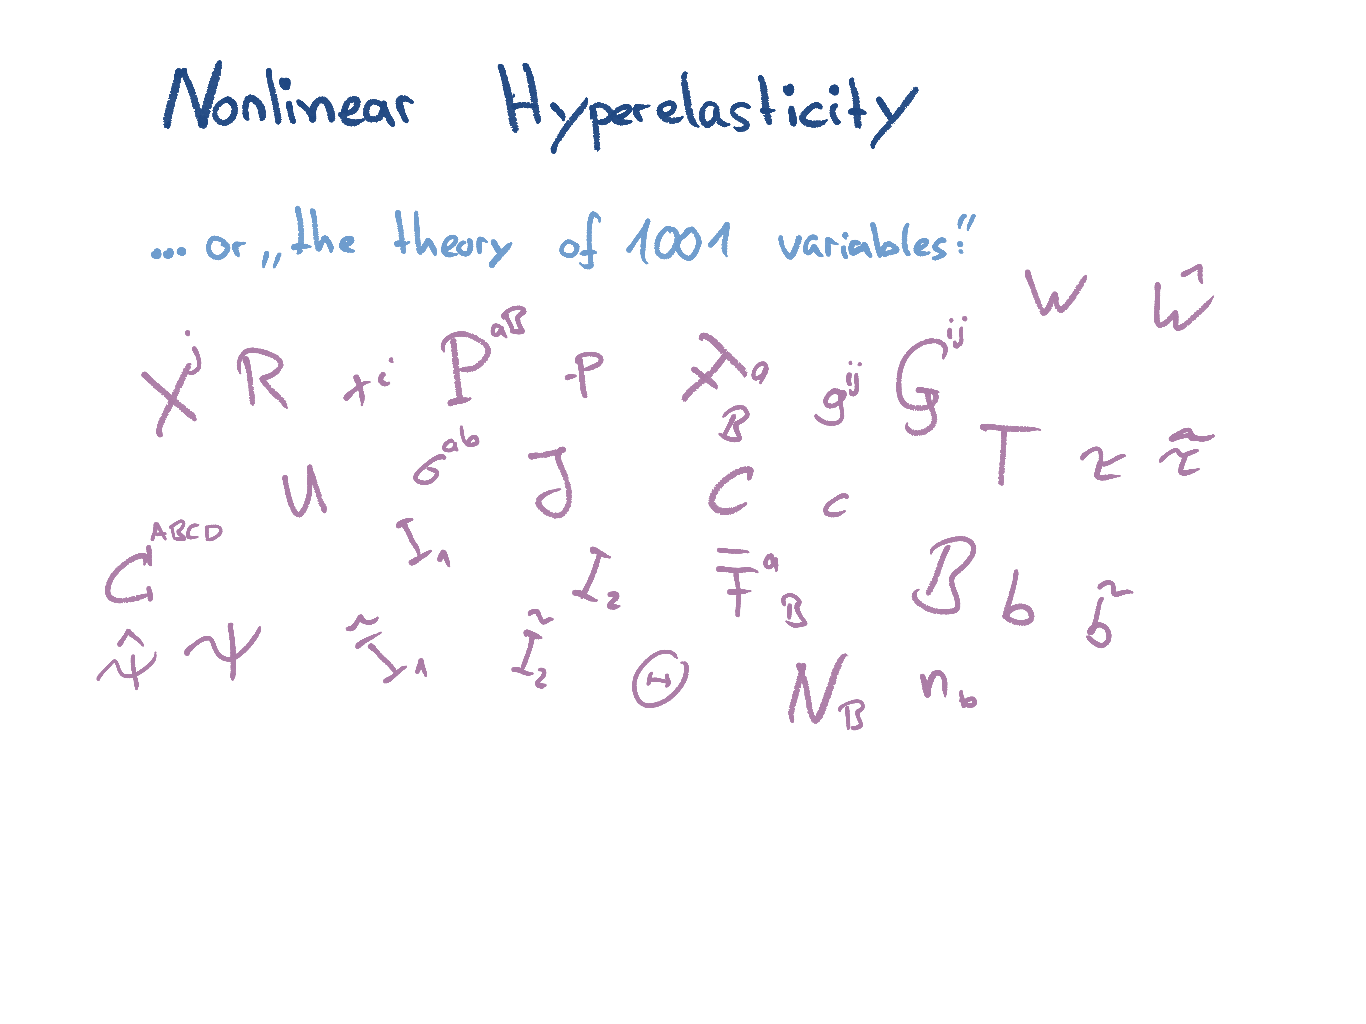 Nonlinear Hyperelasticity
... or „the theory of 1001 variables:"
W Ŵ
X^j R x^i P^{aB} -P λ_a g^{ij} G^{ij}
B
U σ^{ab} J C c T τ τ̃
C^{ABCD} I_1 I_2 F̄^a_B B b b̃
ψ̂ ψ Ĩ_1 Ĩ_2 Θ N_B n_b